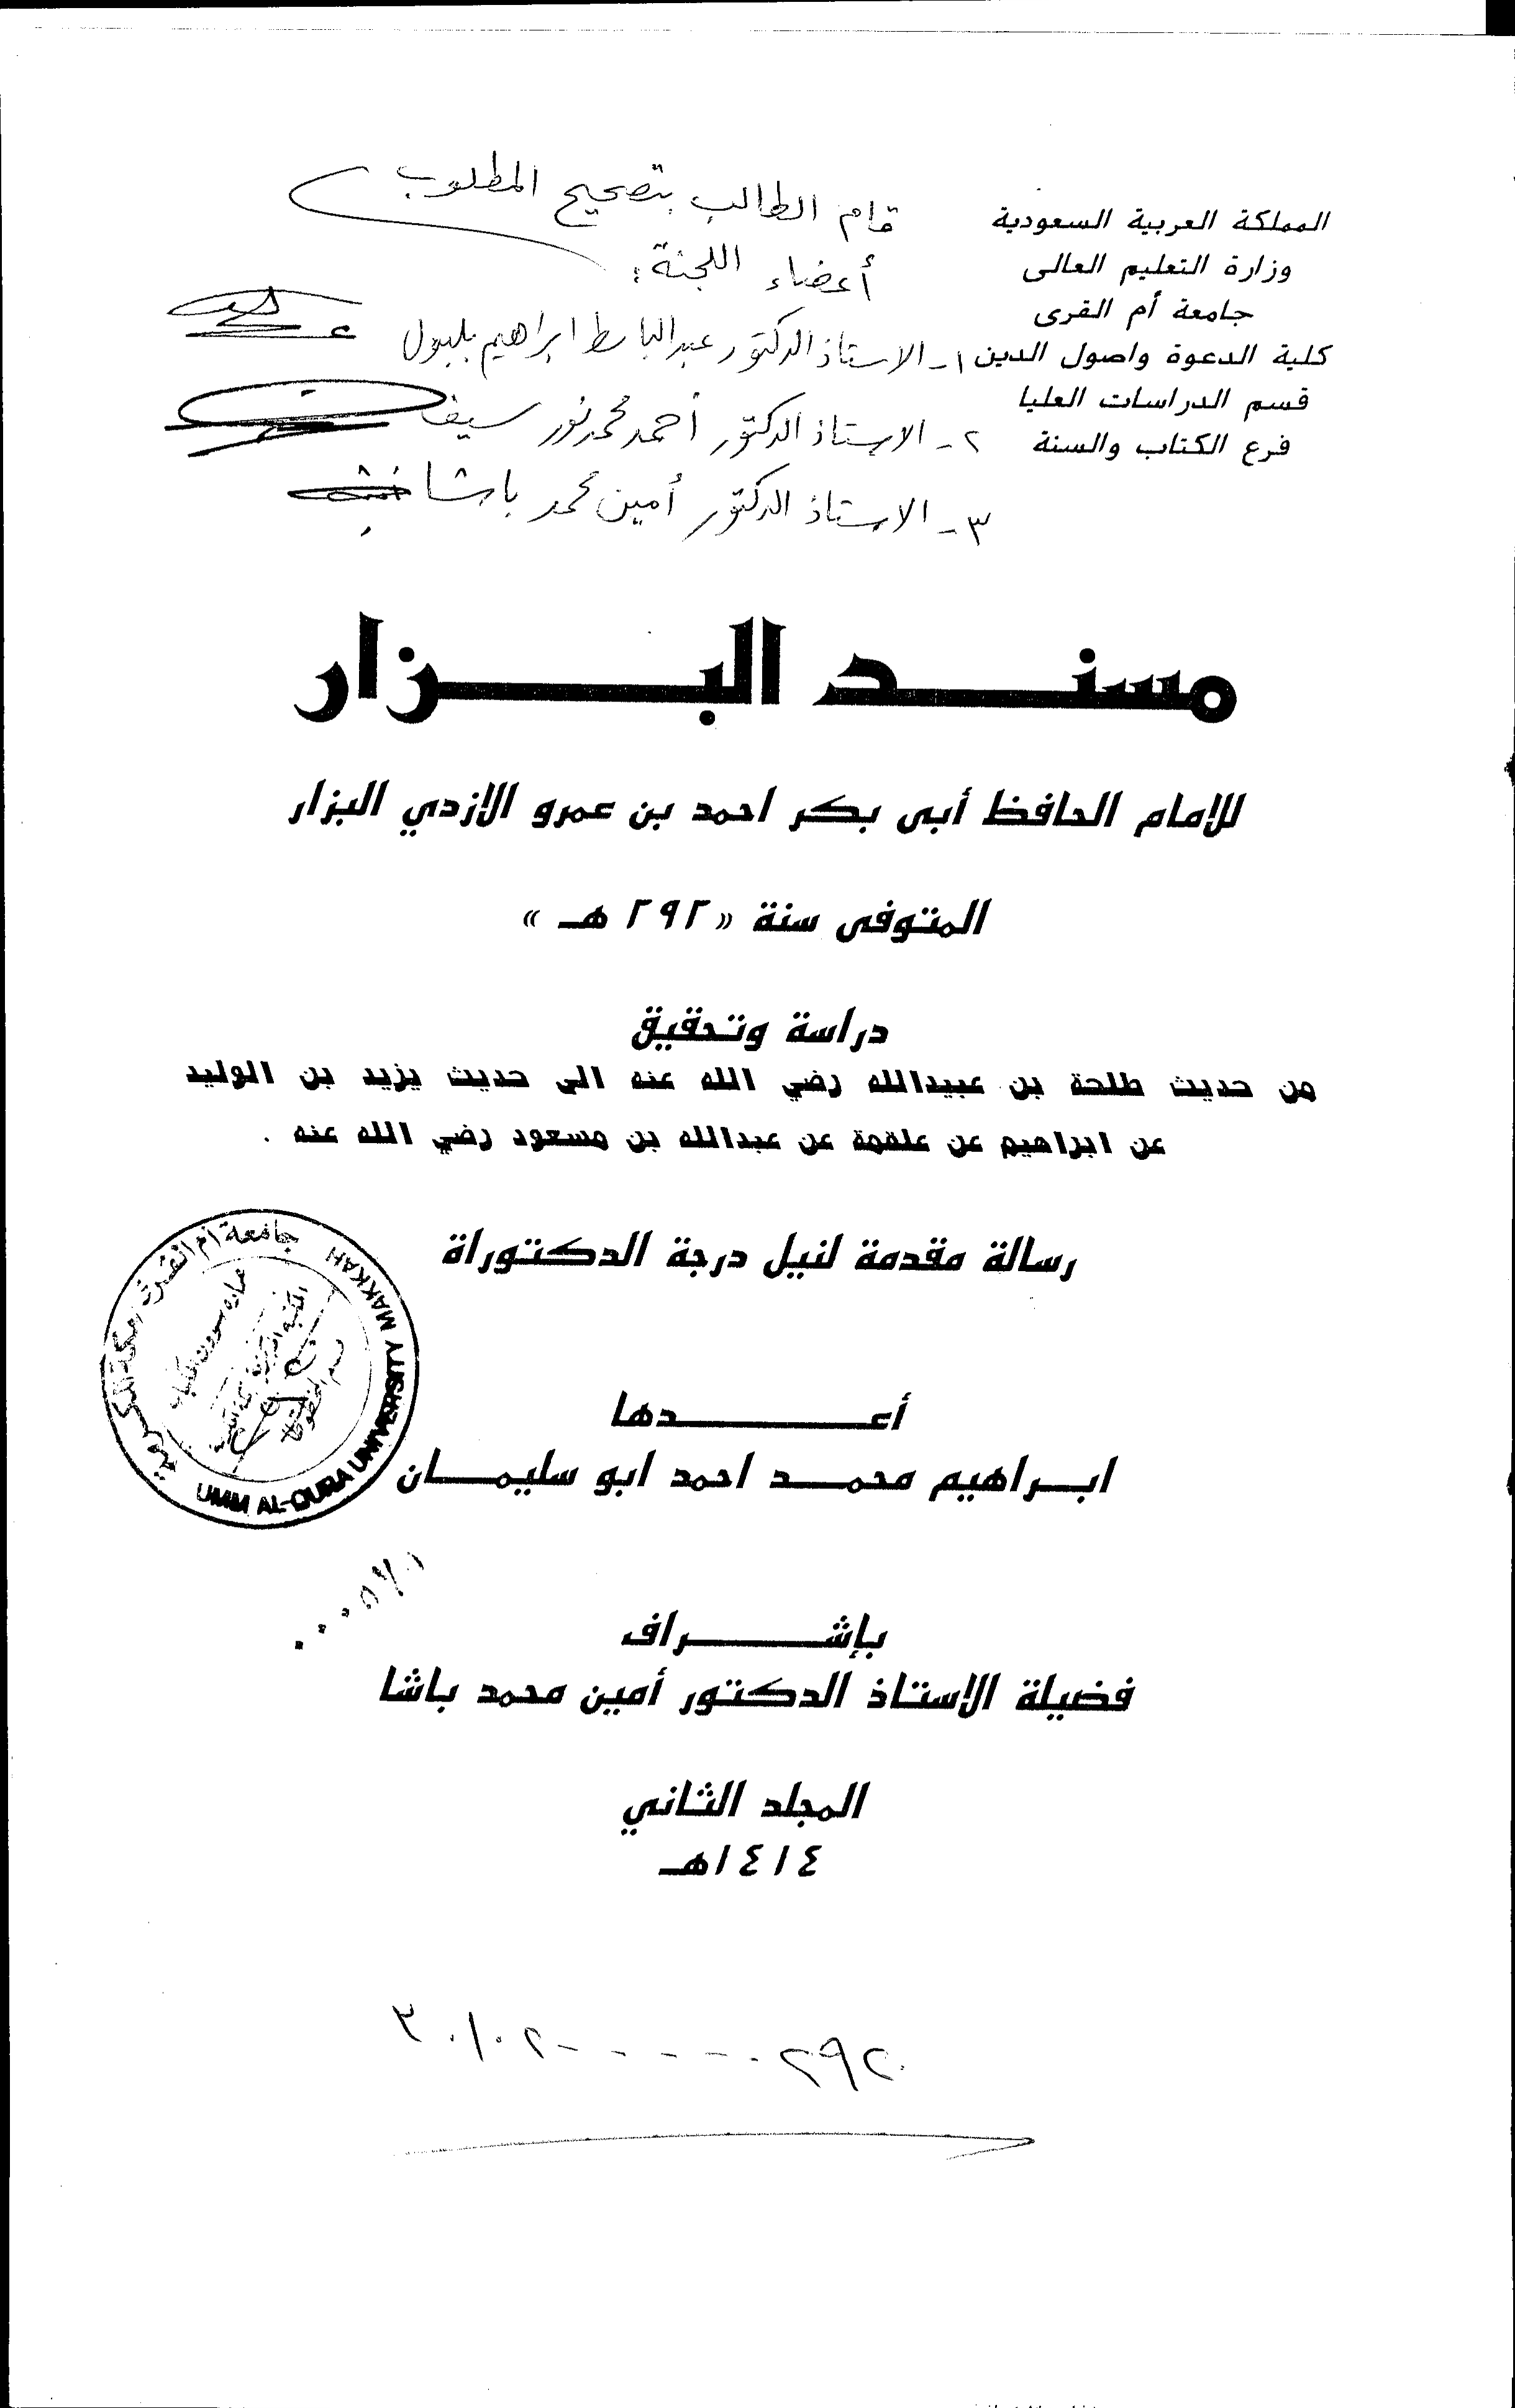 المملكة العربية السعودية
وزارة التعليم العالى
جامعة أم القرى
كلية الدعوة واصول الدين
قسم الدراسات العليا
فرع الكتاب والسنة
قام الطالب بتصحيح المطلوب
أعضاء اللجنة:
١- الاستاذ الدكتور عبد الباسط ابراهيم بلبول
٢- الاستاذ الدكتور أحمد محمد نور سيف
٣- الاستاذ الدكتور أمين محمد باشا
مسند البزار
للإمام الحافظ أبى بكر احمد بن عمرو الازدي البزار
المتوفى سنة «٢٩٢ هـ»
دراسة وتحقيق
من حديث طلحة بن عبيدالله رضي الله عنه الى حديث يزيد بن الوليد
عن ابراهيم عن علقمة عن عبدالله بن مسعود رضي الله عنه .
رسالة مقدمة لنيل درجة الدكتوراة
جامعة أم القرى مكة المكرمة
UMM AL-QURA UNIVERSITY MAKKAH
أعدها
ابراهيم محمد احمد ابو سليمان
بإشراف
فضيلة الاستاذ الدكتور أمين محمد باشا
المجلد الثاني
١٤١٤هـ